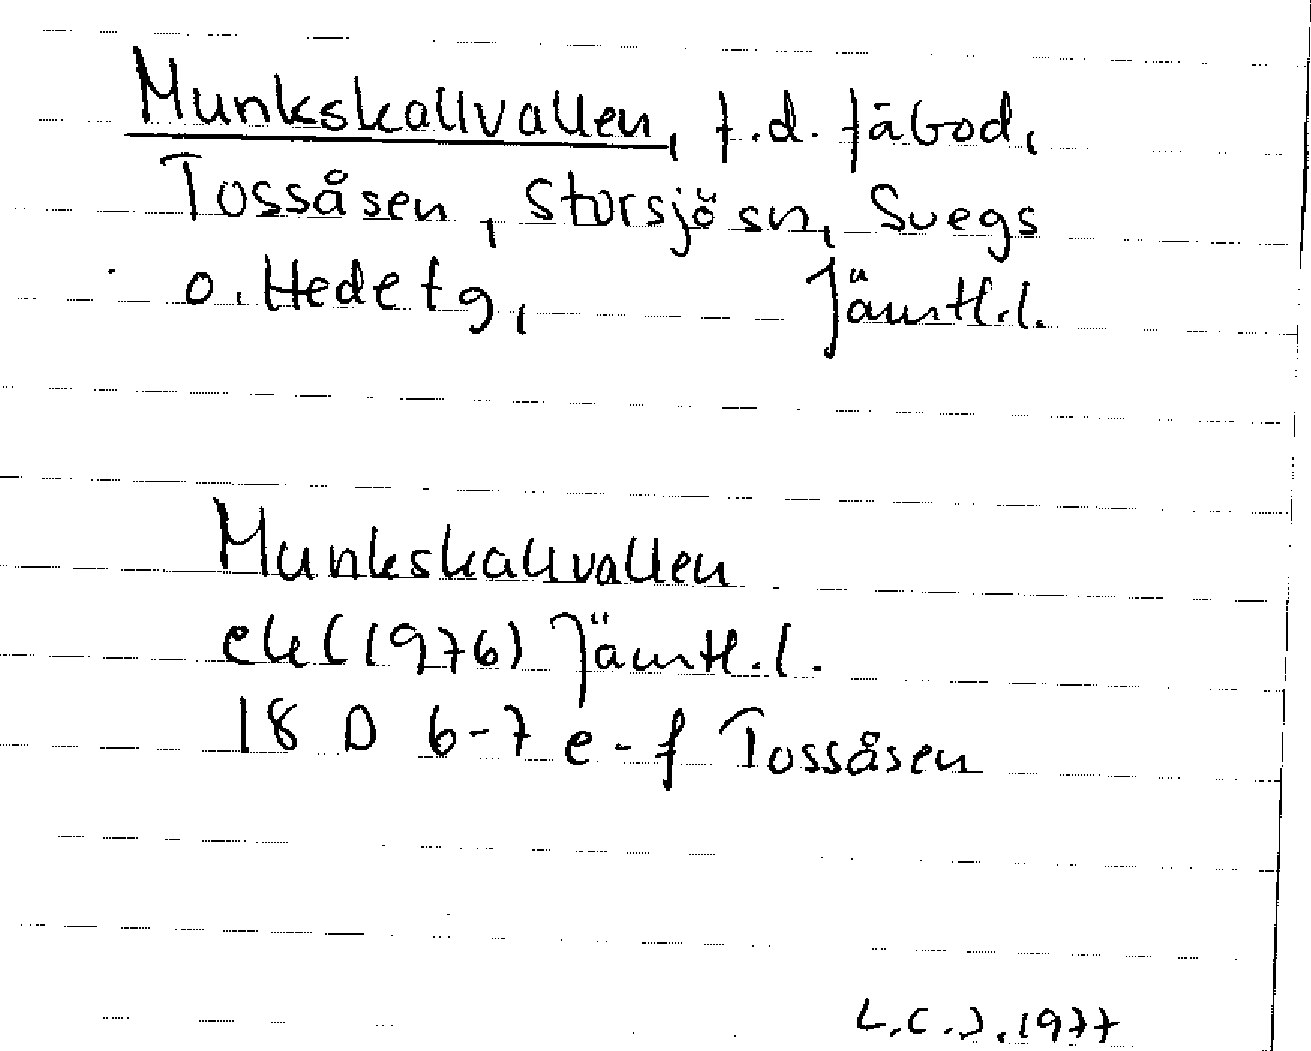 Munkskallvallen, f.d. fäbod,
Tossåsen, Storsjö sn, Svegs
o. Hede tg, Jämtl.l.
Munkskallvallen
ek (1976) Jämtl.l.
18 D 6-7 e-f Tossåsen
L.C.J. 1977